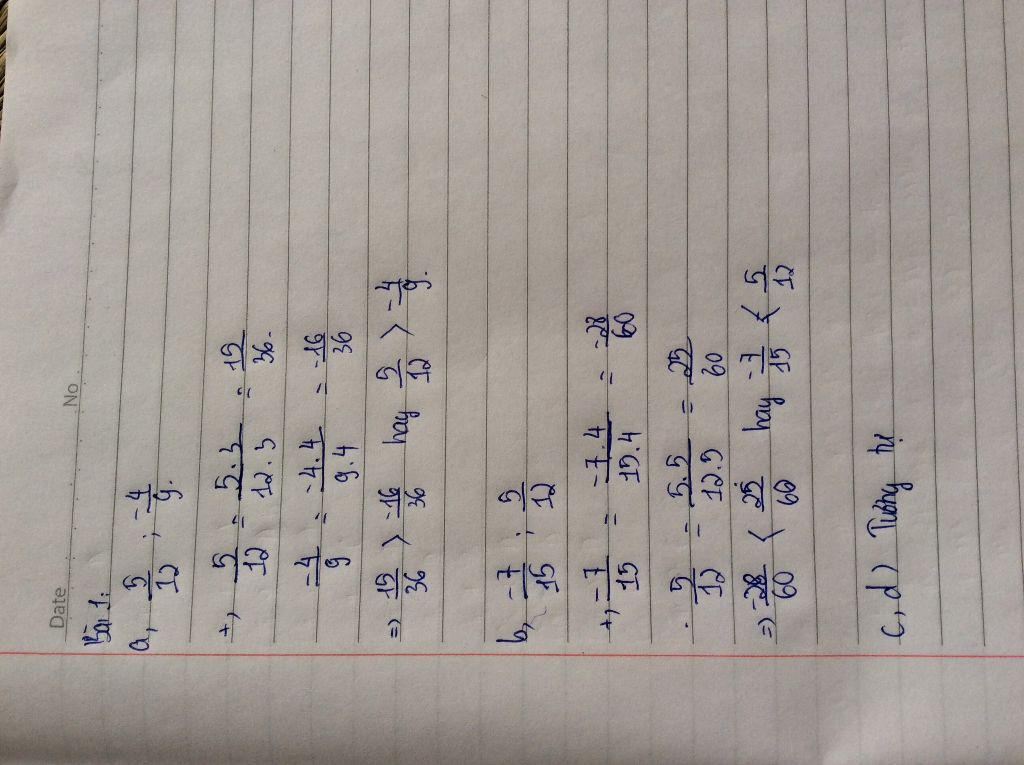 Date No
Bài 1:
a, 5/12 ; -4/9.
+, 5/12 = 5.3/12.3 = 15/36.
-4/9 = -4.4/9.4 = -16/36
=> 15/36 > -16/36 hay 5/12 > -4/9.
b, -7/15 ; 5/12
+, -7/15 = -7.4/15.4 = -28/60
. 5/12 = 5.5/12.5 = 25/60
=> -28/60 < 25/60 hay -7/15 < 5/12
c, d) Tương tự